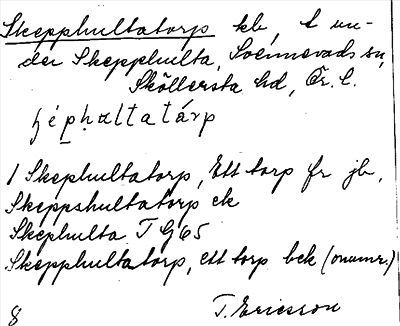 Skepphultatorp kb, t un-
der Skepphulta, Svennevads sn,
Sköllersta hd, Ör. l.
ʃép̱ḥaltatárp
1 Skephultatorp, Ett torp fr jb,
Skeppshultatorp ek
Skephulta T G 65
Skepphultatorp, ett torp bek (onumr.)
8 T. Ericsson